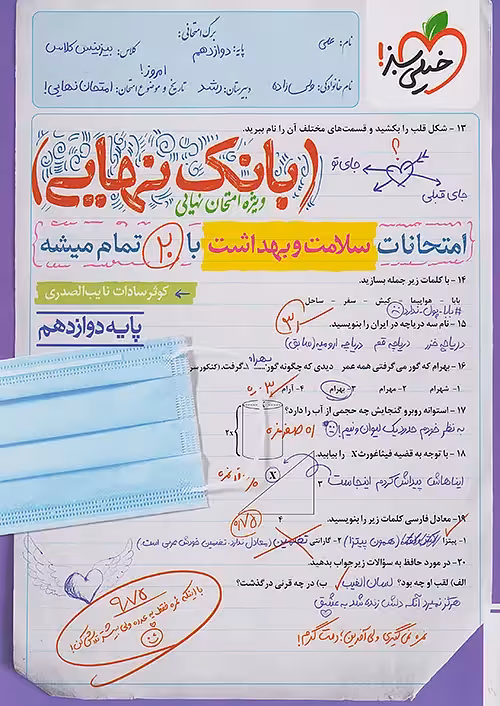 برگ امتحانی:
نام: علمی
پایه: دوازدهم
کلاس: بیزینس کلاس
امروز!
نام خانوادگی: ولی‌زاده
دبیرستان: رشد
تاریخ و موضوع امتحان: امتحان نهایی!
خیلی سبز!
۱۳ - شکل قلب را بکشید و قسمت‌های مختلف آن را نام ببرید.
؟
جای تو
جای قبلی
(بانک نهایی)
ویژه امتحان نهایی
امتحانات سلامت و بهداشت با ۲۰ تمام میشه
۱۴ - با کلمات زیر جمله بسازید.
کوثر سادات نایب‌الصدری
بابا - هواپیما - کیش - سفر - ساحل
#بابا_پول_نداره
پایه دوازدهم
۱۵ - نام سه دریاچه در ایران را بنویسید.
دریاچه خزر دریاچه قم دریاچه ارومیه (سابق)
۱۶ - بهرام که گور می‌گرفتی همه عمر دیدی که چگونه گور بهرام گرفت. (کنکور سر
۱- شهرام ۲- مهرام ۳- بهرام ۴- آرام
۱۷ - استوانه روبرو گنجایش چه حجمی از آب را دارد؟
2x
به نظر خودم حدود یک لیوان و نیم!
۱۸ - با توجه به قضیه فیثاغورث X را بیابید.
X
۳
۴
ایناهاش پیداش کردم اینجاست
۱۹ - معادل فارسی کلمات زیر را بنویسید.
۱- پیتزا (همون پیتزا) ۲- گارانتی تضمین (معادل ندارد، تضمین خودش عربی است)
۲۰ - در مورد حافظ به سؤالات زیر جواب بدهید.
الف) لقب او چه بود؟ لسان الغیب ب) در چه قرنی درگذشت؟
هرگز نمیرد آنکه دلش زنده شد به عشق
نمره نمی‌گیری ولی آفرین! دمت گرم!
۹/۷۵